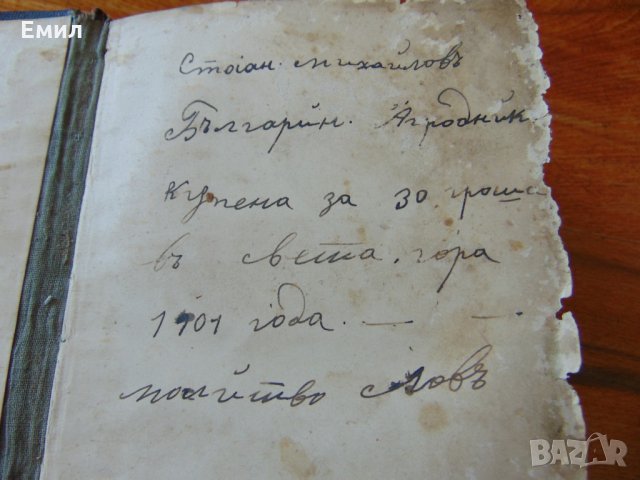 Емил
Стоіан. михайловъ
Българин. Агродник.
купена за 30 гроша
въ света. гора
1901 года. — —
молитво ловъ
BAZAR